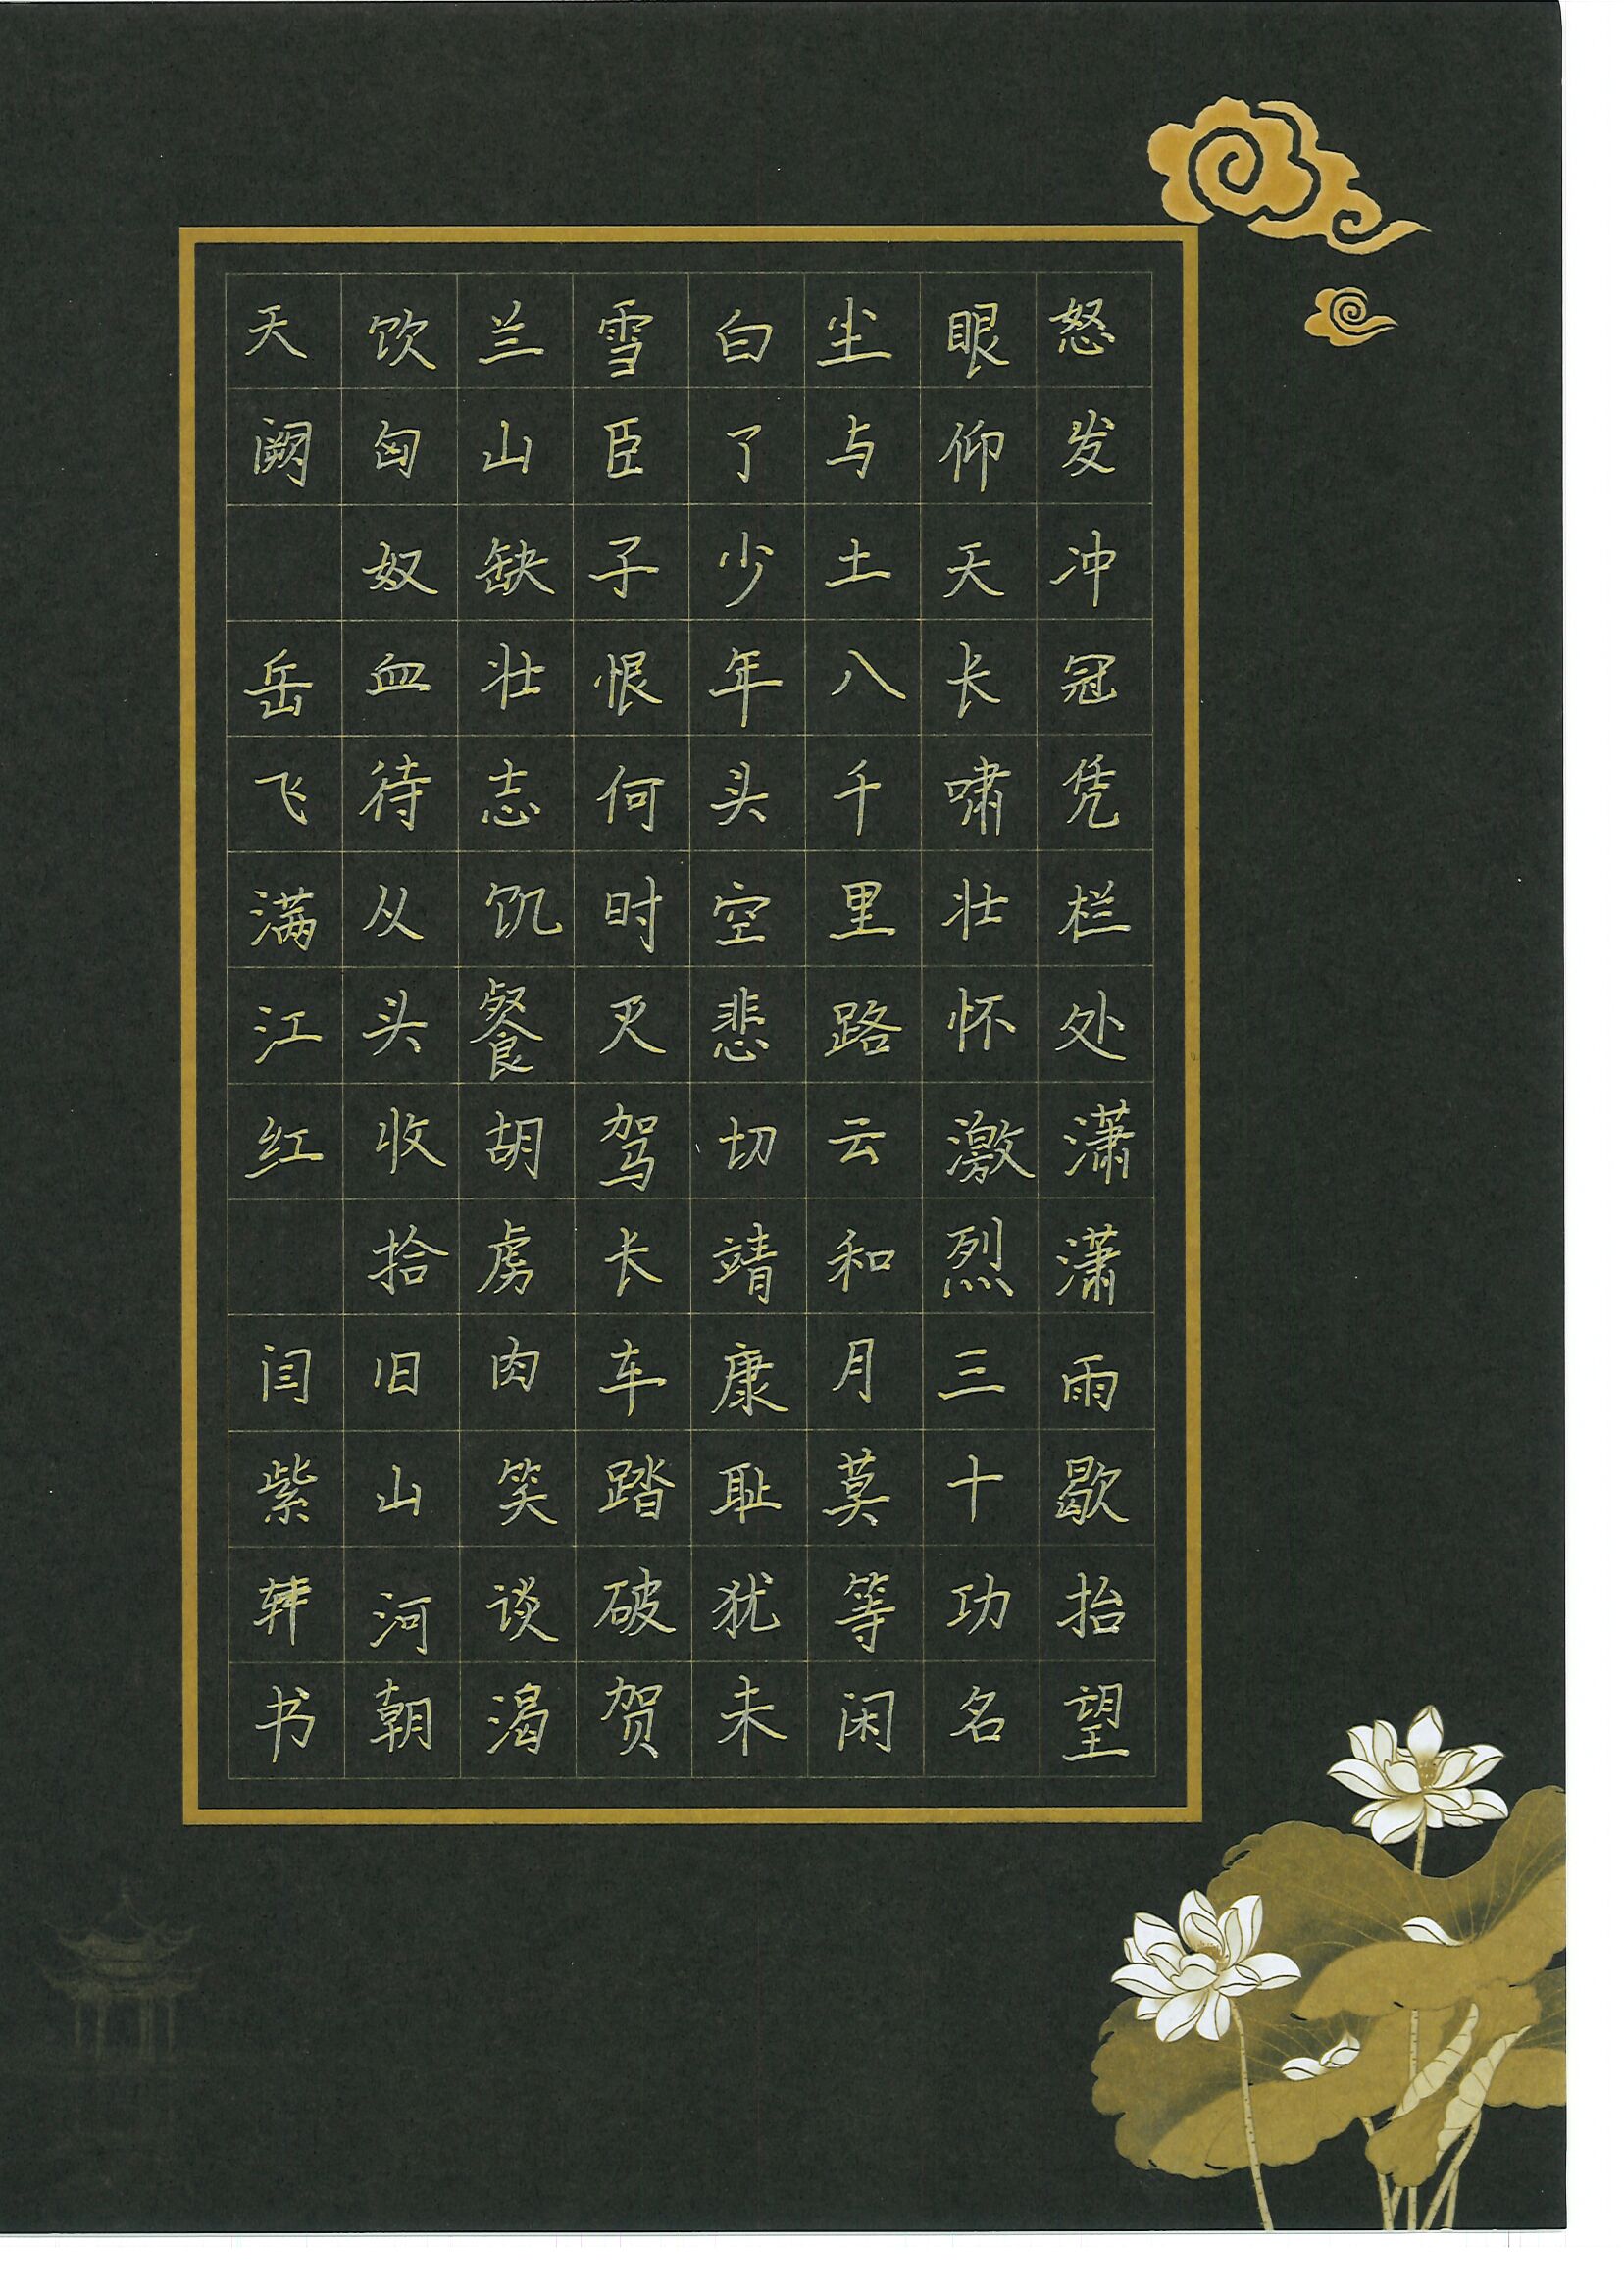 怒发冲冠凭栏处潇潇雨歇抬望
眼仰天长啸壮怀激烈三十功名
尘与土八千里路云和月莫等闲
白了少年头空悲切靖康耻犹未
雪臣子恨何时灭驾长车踏破贺
兰山缺壮志饥餐胡虏肉笑谈渴
饮匈奴血待从头收拾旧山河朝
天阙 岳飞满江红 闫紫书